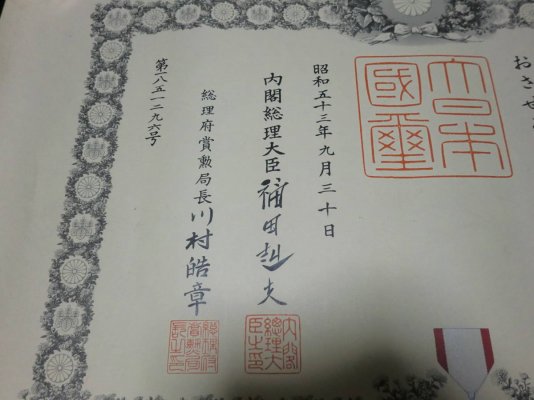 おさせ
大日本國璽
昭和五十三年九月三十日
内閣総理大臣福田赳夫
内閣総理大臣之印
総理府賞勲局長川村皓章
第一八五一二九六号